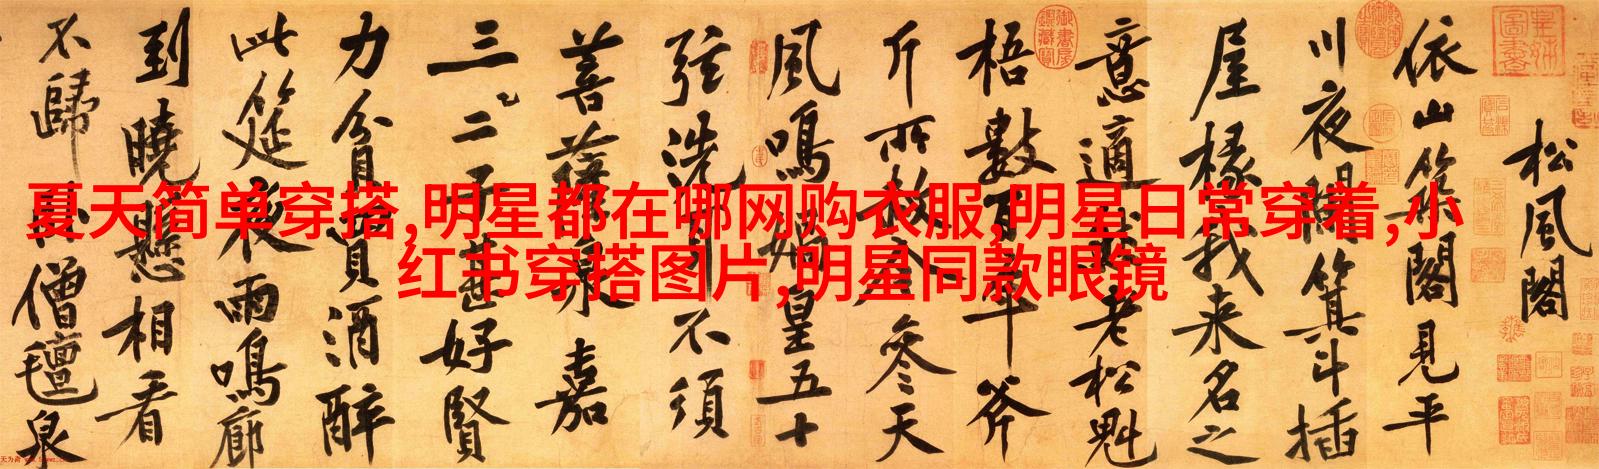 夏天简单穿搭,明星都在哪网购衣服,明星日常穿着,小
红书穿搭图片,明星同款眼镜
松風閣
依山築閣見平
川夜闌箕斗插
屋椽我来名之
意適然老松魁
梧數百年斧
斤所赦今參天
風鳴媧皇五十
弦洗耳不須
菩薩泉嘉
三二子甚好賢
力貧買酒醉
此筵夜雨鳴廊
到曉懸相看
不歸卧僧氈泉